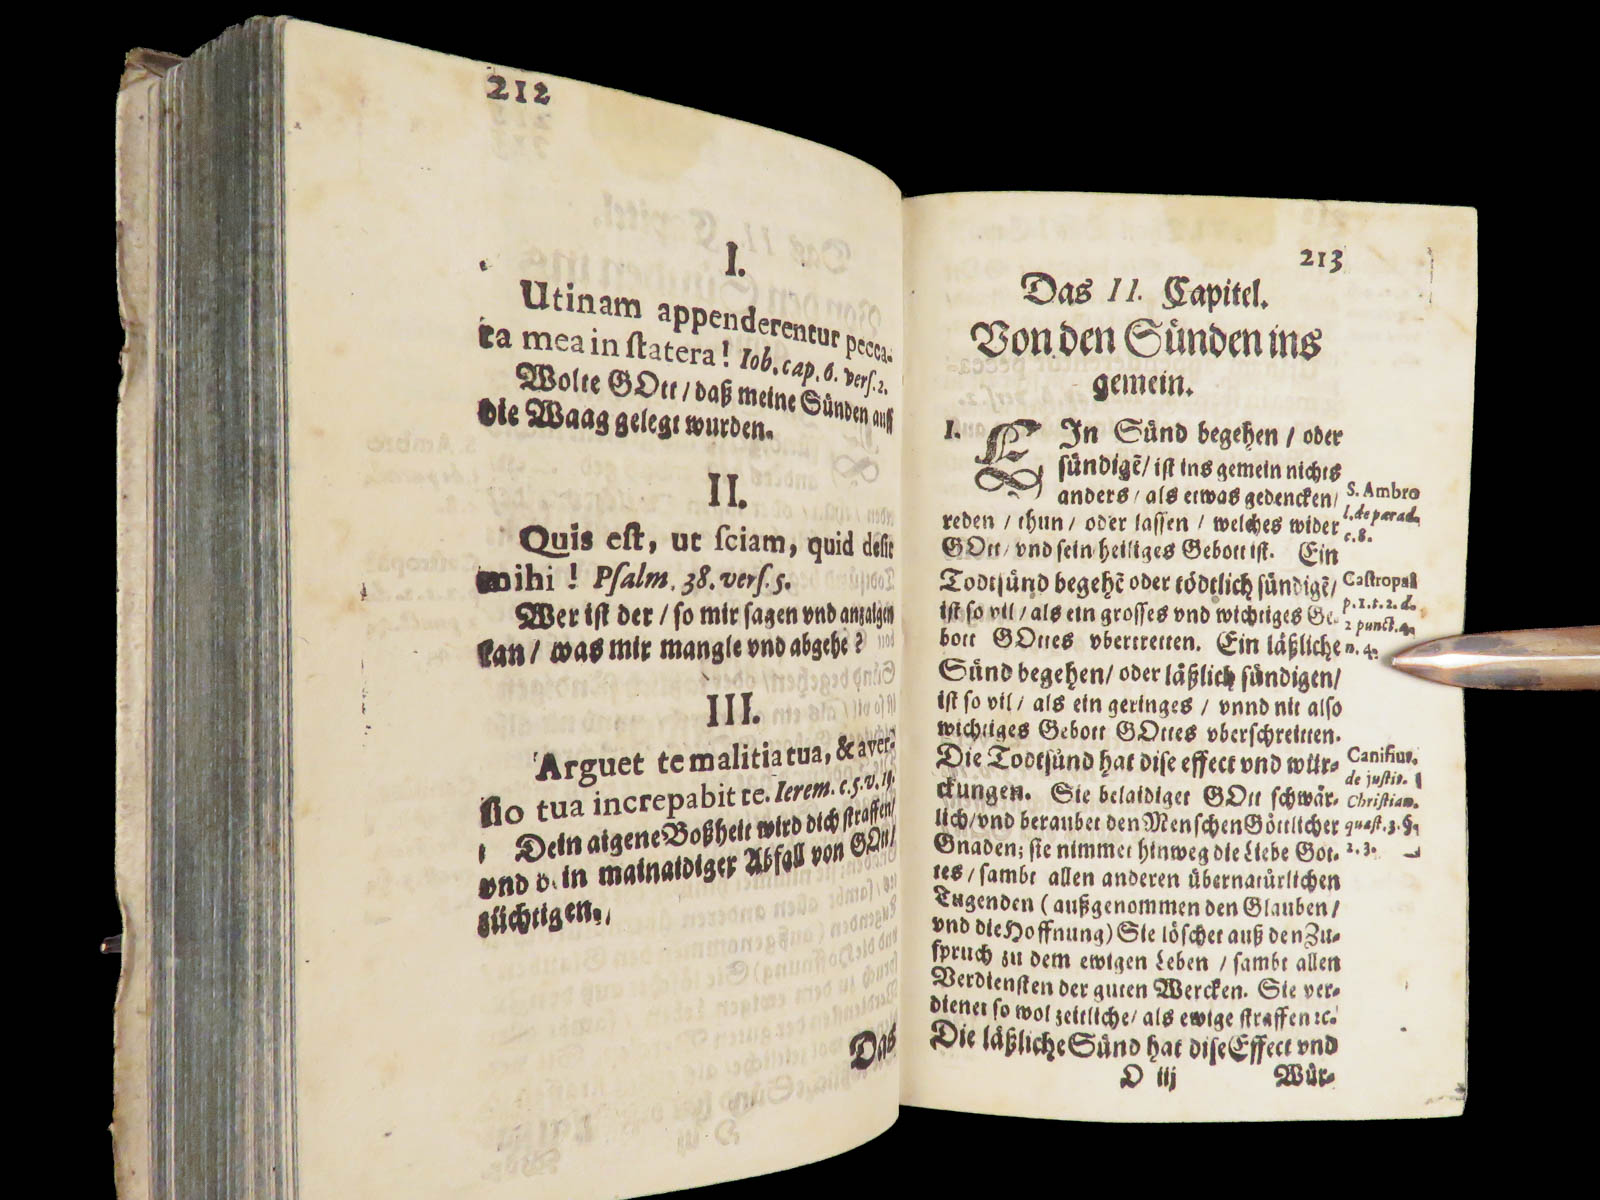 212
I.
Utinam appenderentur pecca-
ta mea in ſtatera! Iob. cap. 6. verſ. 2.
Wolte GOtt / daß meine Sünden auff
die Waag gelegt wurden.
II.
Quis eſt, ut ſciam, quid deſit
mihi! Pſalm. 38. verſ. 5.
Wer iſt der / ſo mir ſagen vnd anzaigen
kan / was mir mangle vnd abgehe?
III.
Arguet te malitia tua, & aver-
ſio tua increpabit te. Ierem. c. 5. v. 19.
Dein aigene Boßheit wird dich ſtraffen /
vnd dein mainaidiger Abfall von GOtt /
züchtigen.
Das
213
Das II. Capitel.
Von den Sünden ins
gemein.
I. EIn Sünd begehen / oder
ſündigẽ / iſt ins gemein nichts
anders / als etwas gedencken /
reden / thun / oder laſſen / welches wider
GOtt / vnd ſein heiliges Gebott iſt. Ein
Todtſünd begehẽ oder tödtlich ſündigẽ /
iſt ſo vil / als ein groſſes vnd wichtiges Ge-
bott GOttes vbertretten. Ein läßliche
Sünd begehen / oder läßlich ſündigen /
iſt ſo vil / als ein geringes / vnnd nit alſo
wichtiges Gebott GOttes vberſchreitten.
Die Todtſünd hat diſe effect vnd wür-
ckungen. Sie belaidiget GOtt ſchwär-
lich / vnd beraubet den Menſchen Göttlicher
Gnaden; ſie nimmet hinweg die Liebe Got-
tes / ſambt allen anderen übernatürlichen
Tugenden (außgenommen den Glauben /
vnd die Hoffnung) Sie löſchet auß den Zu-
ſpruch zu dem ewigen Leben / ſambt allen
Verdienſten der guten Wercken. Sie ver-
dienet ſo wol zeitliche / als ewige ſtraffen ꝛc.
Die läßliche Sünd hat diſe Effect vnd
O iij
Wür-
S. Ambro
l. de parad.
c. 8.
Caſtropal
p. 1. t. 2. d.
2 punct. 4.
n. 4.
Caniſius.
de juſtit.
Chriſtian.
quæſt. 3. §.
2. 3.